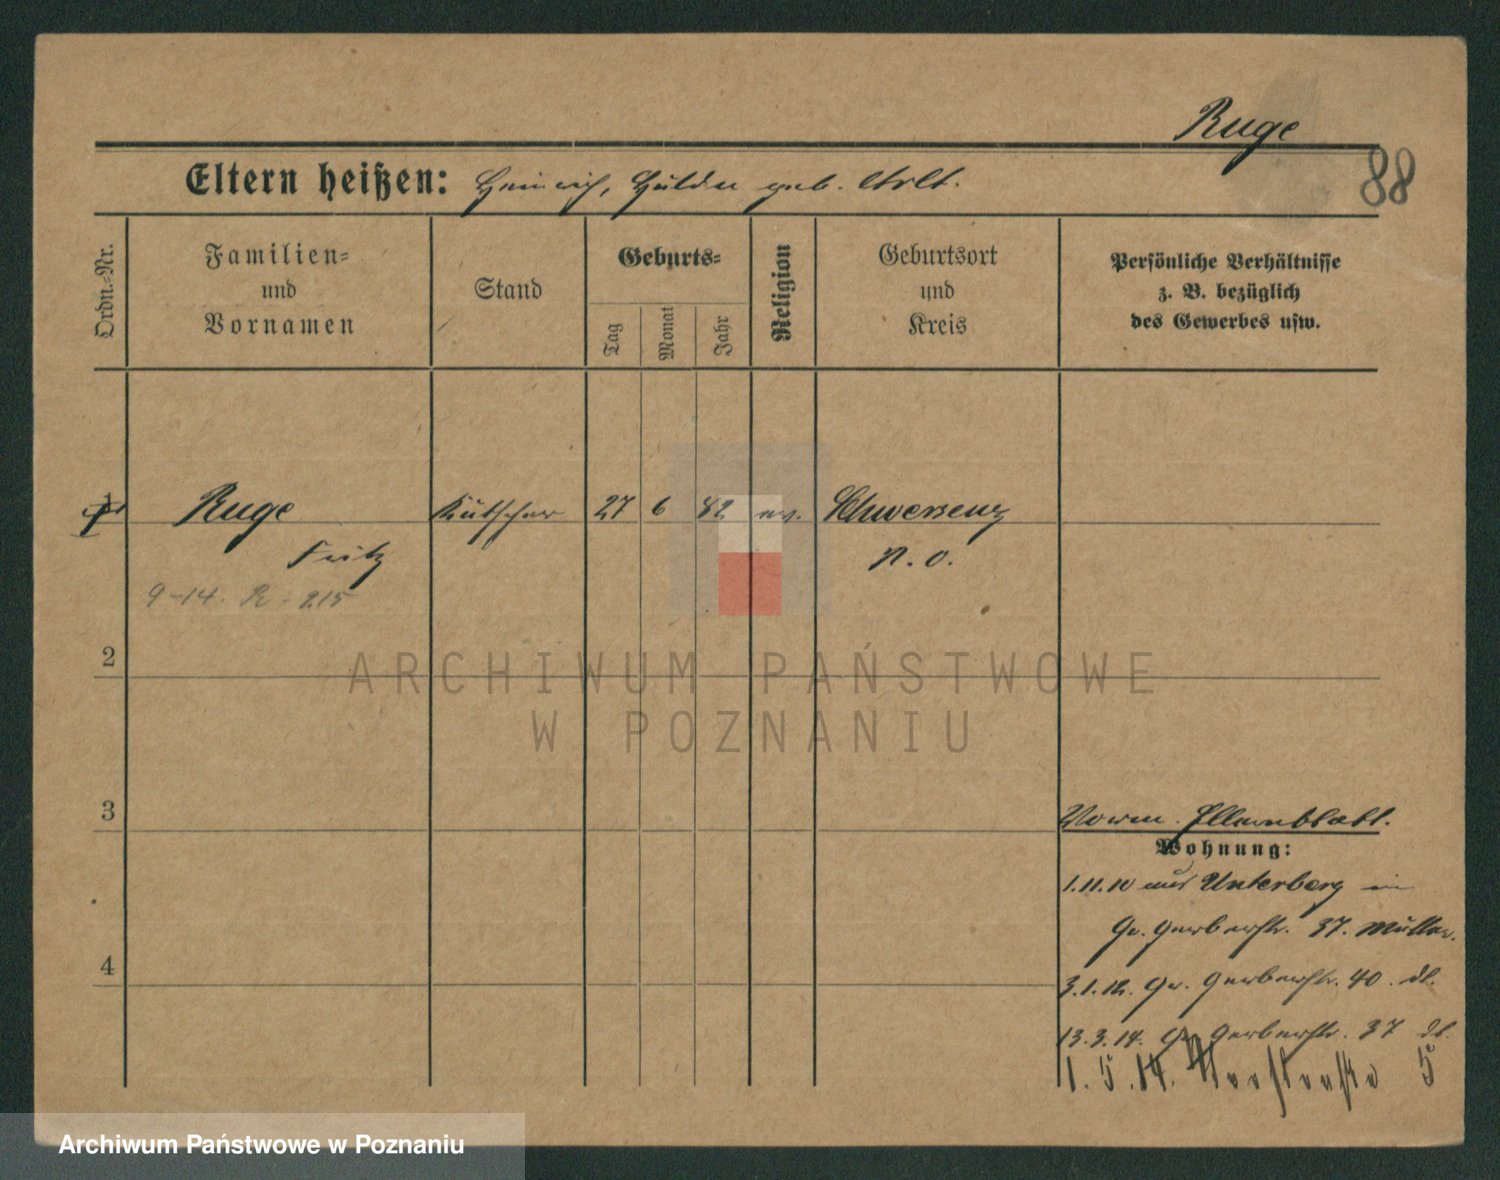 Ruge
88
Eltern heißen: Heinrich, Hulda geb. Arlt.
Ordn.-Nr.
Familien- und Vornamen
Stand
Geburts-
Tag
Monat
Jahr
Religion
Geburtsort und Kreis
Persönliche Verhältnisse
z. B. bezüglich
des Gewerbes usw.
1 Ruge Kutscher 27 6 82 ev. Schwersenz
Fritz P. O.
9-14. R - 215
2
ARCHIWUM PAŃSTWOWE
W POZNANIU
3
Vorm.
Wohnung:
1.11.10 aus Unterberg in
Gr. Gerberstr. 37. Müller.
4
3.1.12. Gr. Gerberstr. 40. dt.
13.3.14. Gr. Gerberstr. 37 dt.
1.5.14. 5
Archiwum Państwowe w Poznaniu